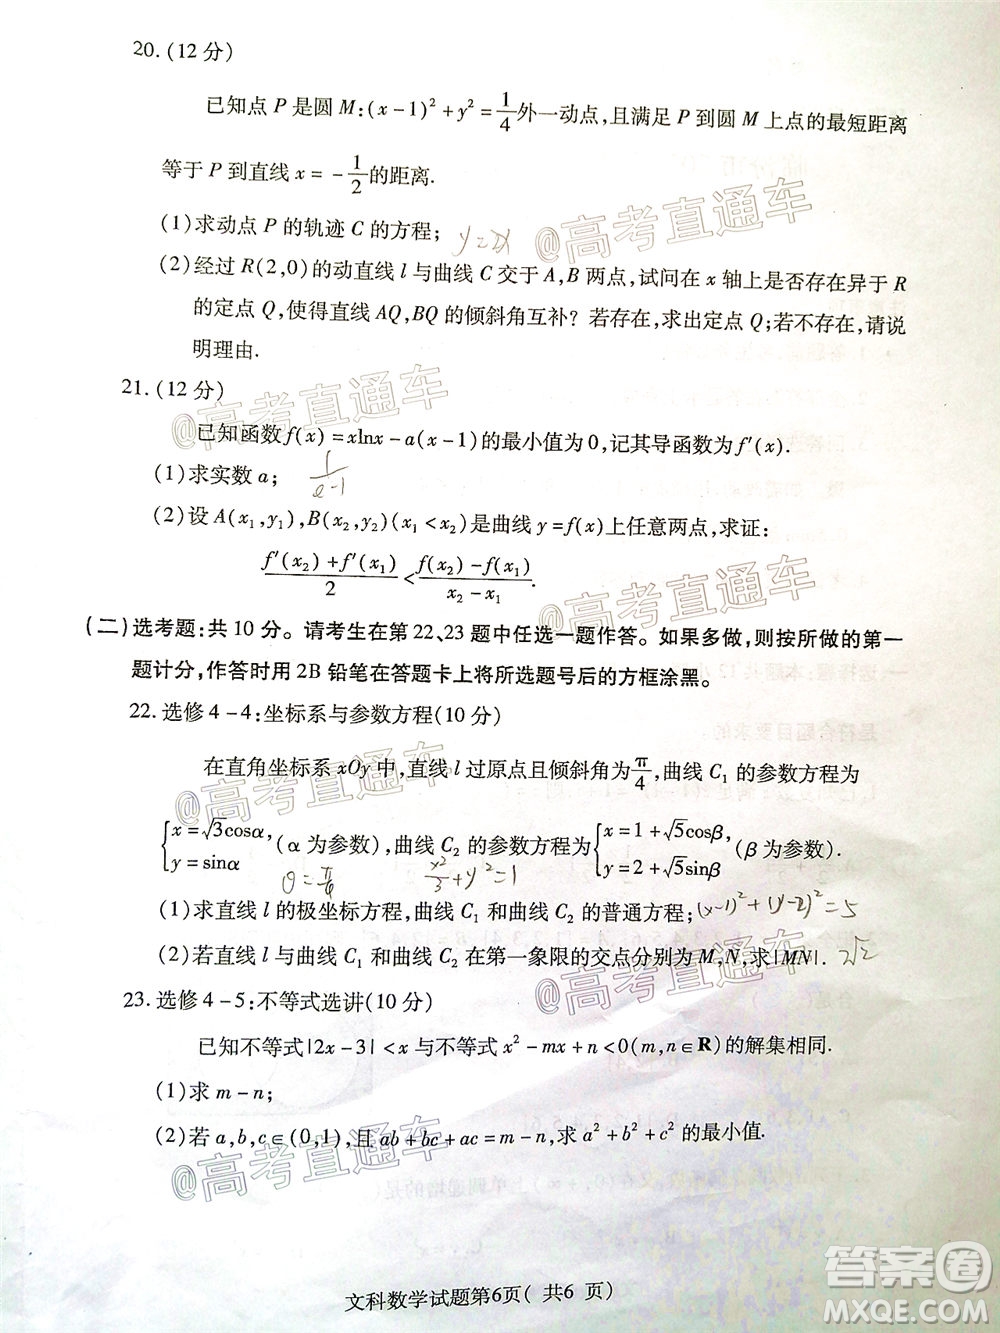 20.(12 分)
已知点 P 是圆 M:(x-1)²+y²=1/4外一动点,且满足 P 到圆 M 上点的最短距离
等于 P 到直线 x=-1/2的距离.
(1)求动点 P 的轨迹 C 的方程;
@高考直通车
(2)经过 R(2,0)的动直线 l 与曲线 C 交于 A,B 两点,试问在 x 轴上是否存在异于 R
的定点 Q,使得直线 AQ,BQ 的倾斜角互补? 若存在,求出定点 Q;若不存在,请说
明理由.
21.(12 分)
@高考直通车
已知函数f(x)=xlnx-a(x-1)的最小值为 0,记其导函数为f′(x).
(1)求实数 a; 1/(e-1)
(2)设 A(x₁,y₁),B(x₂,y₂)(x₁<x₂)是曲线 y=f(x)上任意两点,求证:
(f′(x₂)+f′(x₁))/2<(f(x₂)-f(x₁))/(x₂-x₁).
@高考直通车
(二)选考题:共 10 分。请考生在第 22、23 题中任选一题作答。如果多做,则按所做的第一
题计分,作答时用 2B 铅笔在答题卡上将所选题号后的方框涂黑。
22.选修 4-4:坐标系与参数方程(10 分)
@高考直通车
在直角坐标系 xOy 中,直线 l 过原点且倾斜角为π/4,曲线 C₁ 的参数方程为
{x=√3cosα, y=sinα (α 为参数),曲线 C₂ 的参数方程为{x=1+√5cosβ, y=2+√5sinβ (β 为参数).
x²/3+y²=1
(1)求直线 l 的极坐标方程,曲线 C₁ 和曲线 C₂ 的普通方程; (x-1)²+(y-2)²=5
(2)若直线 l 与曲线 C₁ 和曲线 C₂ 在第一象限的交点分别为 M,N,求|MN|. 2√2
@高考直通车
23.选修 4-5:不等式选讲(10 分)
已知不等式|2x-3|<x 与不等式 x²-mx+n<0(m,n∈R)的解集相同.
(1)求 m-n;
(2)若 a,b,c∈(0,1),且 ab+bc+ac=m-n,求 a²+b²+c² 的最小值.
@高考直通车
文科数学试题第6页( 共6 页)
答案圈
MXQE.COM